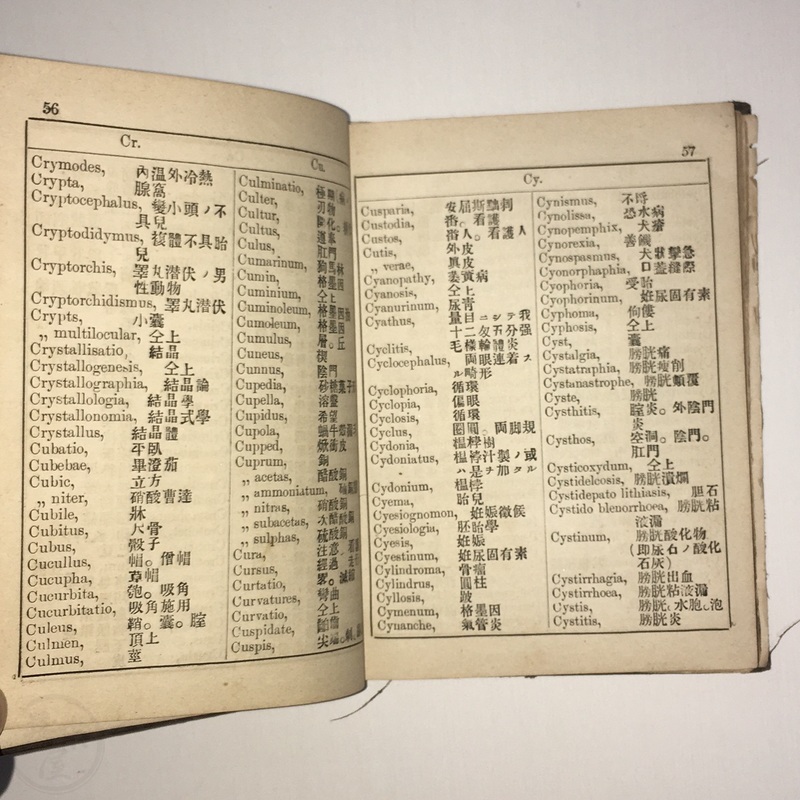 56
Cr.
Crymodes, 內溫外冷熱
Crypta, 腺窩
Cryptocephalus, 變小頭ノ不
具兒
Cryptodidymus, 複體不具胎
兒
Cryptorchis, 睪丸潜伏ノ男
性動物
Cryptorchidismus, 睪丸潜伏
Crypts, 小囊
„ multilocular, 仝上
Crystallisatio, 結晶
Crystallogenesis, 仝上
Crystallographia, 結晶論
Crystallologia, 結晶學
Crystallonomia, 結晶式學
Crystallus, 結晶體
Cubatio, 平臥
Cubebae, 畢澄茄
Cubic, 立方
„ niter, 硝酸曹達
Cubile, 牀
Cubitus, 大骨
Cubus, 骰子
Cucullus, 帽。僧帽
Cucupha, 草帽
Cucurbita, 匏。吸角
Cucurbitatio, 吸角施用
Culeus, 鞘。囊。腟
Culmen, 頂上
Culmus, 莖
Cu.
Culminatio,
Culter,
Cultur,
Cultus,
Culus, 肛門
Cumarinum,
Cumin,
Cuminium, 仝上
Cuminoleum,
Cumoleum,
Cumulus,
Cuneus, 楔
Cunnus, 陰門
Cupedia,
Cupella,
Cupidus, 希望
Cupola,
Cupped,
Cuprum, 銅
„ acetas, 醋酸銅
„ ammoniatum,
„ nitras, 硝酸
„ subacetas, 次醋酸
„ sulphas, 硫酸
Cura, 注意
Cursus, 經過
Curtatio,
Curvatures, 彎曲
Curvatio, 仝上
Cuspidate,
Cuspis,
57
Cy.
Cusparia,
Custodia, 番。看護
Custos, 番人。看護人
Cutis, 外皮
„ verae, 眞皮
Cyanopathy, 萎黃病
Cyanosis, 仝上
Cyanurinum, 尿靑
Cyathus, 量目ニシテ我
十二匁五分强
Cyclitis, 毛樣輪體炎
Cyclocephalus, 両眼連着ス
ル畸形
Cyclophoria, 循環
Cyclopia, 偏眼
Cyclosis, 循環
Cyclus, 圈圓。両脚規
Cydonia, 榲桲樹
Cydoniatus, 榲桲汁製ノ或
ハ是ヲ加タル
Cydonium, 榲桲
Cyema, 胎兒
Cyesiognomon, 姙娠徵候
Cyesiologia, 胚胎學
Cyesis, 姙娠
Cyestinum, 姙尿固有素
Cylindroma, 骨瘤
Cylindrus, 圓柱
Cyllosis, 跛
Cymenum, 格墨因
Cynanche, 氣管炎
Cynismus,
Cynolissa, 恐水病
Cynopemphix, 犬瘡
Cynorexia, 善饑
Cynospasmus, 犬狀攣急
Cynorphaphia, 口蓋縫際
Cyophoria, 受胎
Cyophorinum, 姙尿固有素
Cyphoma, 佝僂
Cyphosis, 仝上
Cyst, 囊
Cystalgia, 膀胱痛
Cystatraphia, 膀胱瘦削
Cystanastrophe, 膀胱顚覆
Cyste, 膀胱
Cysthitis, 腟炎。外陰門
炎
Cysthos, 空洞。陰門。
肛門
Cysticoxydum, 仝上
Cystidelcosis, 膀胱潰爛
Cystidepato lithiasis, 胆石
Cystido blenorrhoea, 膀胱粘
液漏
Cystinum, 膀胱酸化物
(即尿石ノ酸化
石灰)
Cystirrhagia, 膀胱出血
Cystirrhoea, 膀胱粘液漏
Cystis, 膀胱、水胞。泡
Cystitis, 膀胱炎